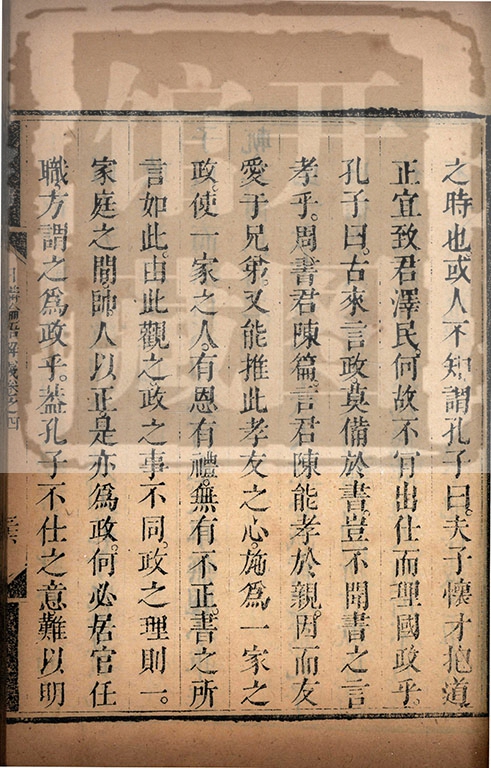 之時也或人不知謂孔子曰夫子懷才抱道
正宜致君澤民何故不肯出仕而理國政乎
孔子曰古來言政莫備於書豈不聞書之言
孝乎周書君陳篇言君陳能孝於親因而友
愛于兄弟又能推此孝友之心施為一家之
政使一家之人有恩有禮無有不正書之所
言如此由此觀之政之事不同政之理則一
家庭之間帥人以正是亦為政何必居官任
職方謂之為政乎蓋孔子不仕之意難以明